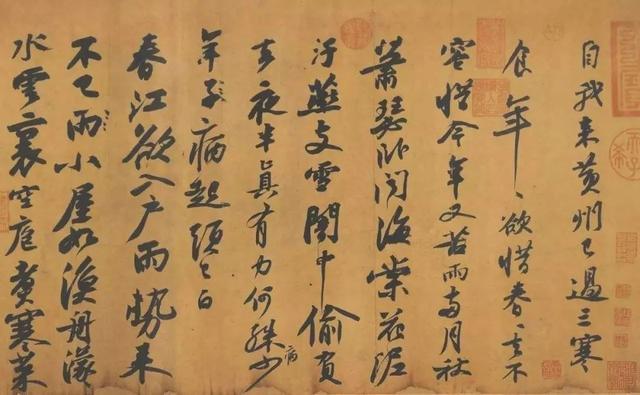 自我来黄州已過三寒
食年〻欲惜春〻去不
容惜今年又苦雨兩月秋
蕭瑟卧聞海棠花泥
汙燕支雪闇中偷負
去夜半真有力何殊少
病
年子病起頭已白
春江欲入户雨勢来
不已雨小屋如漁舟濛〻
水雲裏空庖煮寒菜